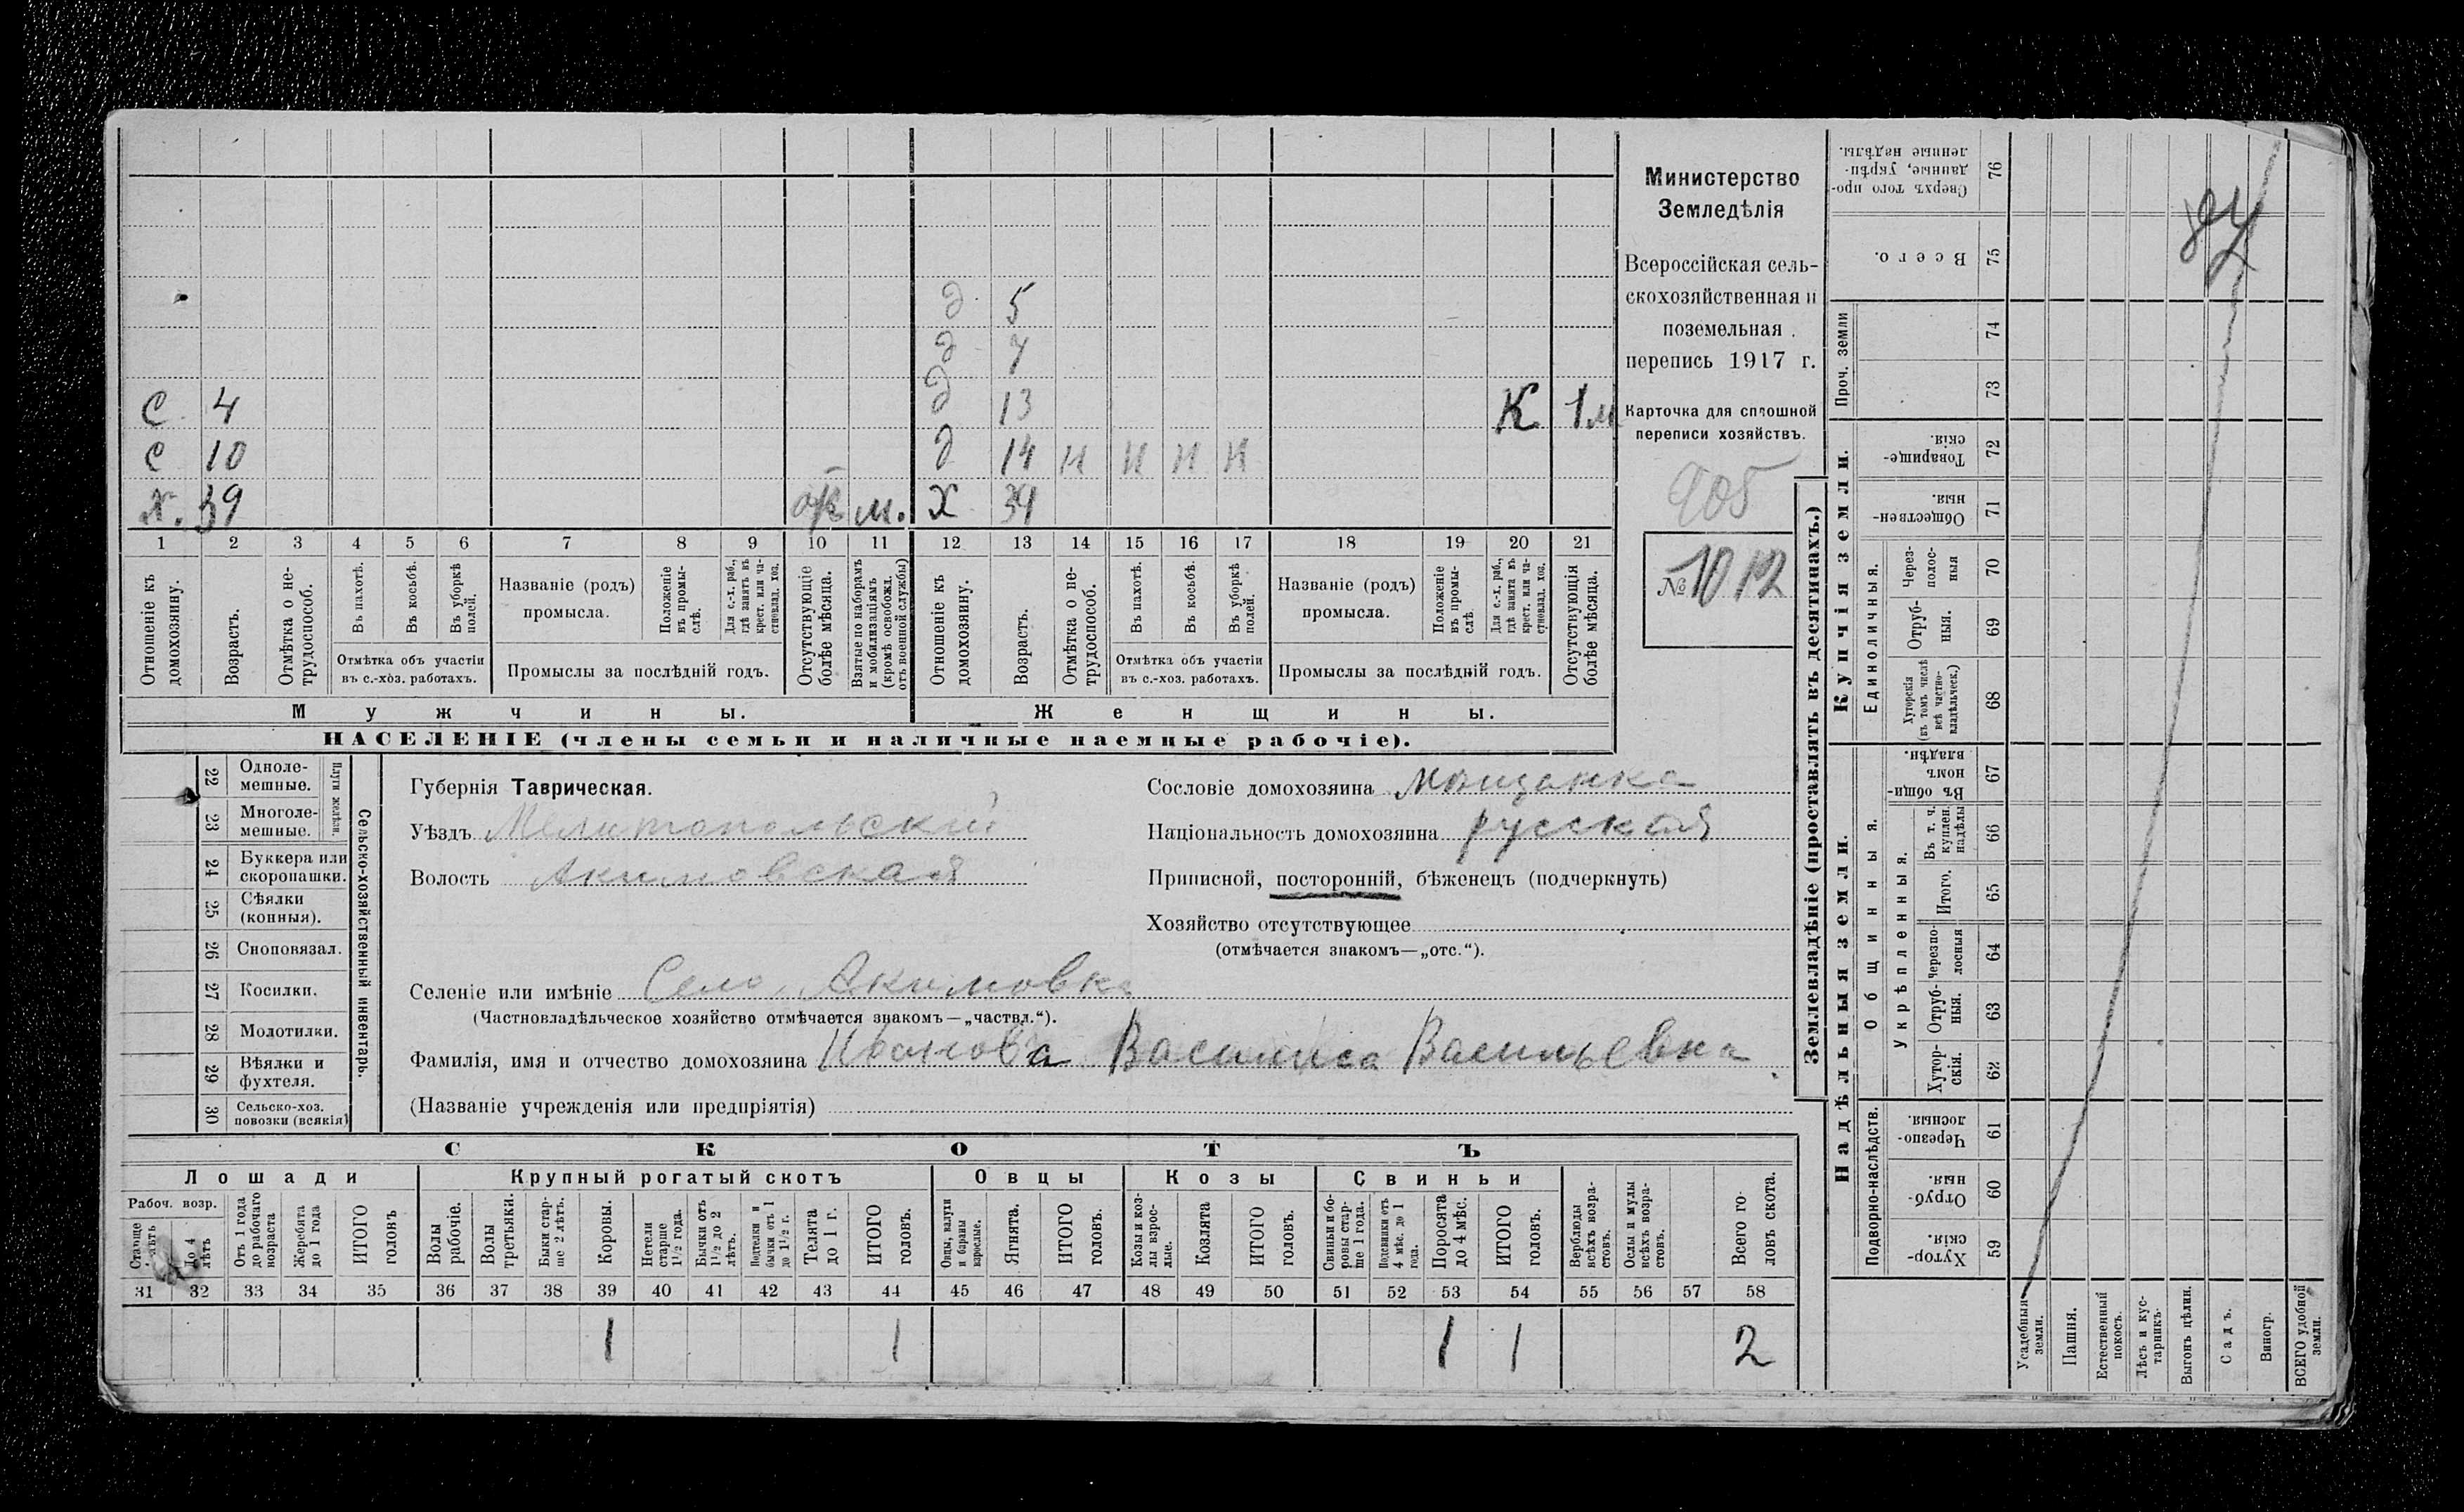 Министерство
Земледѣлія
Всероссійская сель-
скохозяйственная и
поземельная
перепись 1917 г.
Карточка для сплошной
переписи хозяйствъ.
905
№ 1012
87
д 5
д 7
С 4 д 13 К 1 м
С 10 д 14 н н н н
х. 39 м. х 34
1 2 3 4 5 6 7 8 9 10 11 12 13 14 15 16 17 18 19 20 21
Отношеніе къ домохозяину.
Возрастъ.
Отмѣтка о не-трудоспособ.
Въ пахотѣ.
Въ косьбѣ.
Въ уборкѣ полей.
Отмѣтка объ участіи въ с.-хоз. работахъ.
Названіе (родъ) промысла.
Положеніе въ промы-слѣ.
Для с.-х. раб., гдѣ занятъ въ крест. или ча-стновлад. хоз.
Промыслы за послѣдній годъ.
Отсутствующіе болѣе мѣсяца.
Взятые по наборамъ и мобилизаціямъ (кромѣ освобожд. отъ военной службы)
Отношеніе къ домохозяину.
Возрастъ.
Отмѣтка о не-трудоспособ.
Въ пахотѣ.
Въ косьбѣ.
Въ уборкѣ полей.
Отмѣтка объ участіи въ с.-хоз. работахъ.
Названіе (родъ) промысла.
Положеніе въ промы-слѣ.
Для с.-х. раб., гдѣ занята въ крест. или ча-стновлад. хоз.
Промыслы за послѣдній годъ.
Отсутствующія болѣе мѣсяца.
Мужчины. Женщины.
НАСЕЛЕНІЕ (члены семьи и наличные наемные рабочіе).
22 Одноле-мешные.
23 Многоле-мешные.
Плуги желѣзн.
24 Буккера или скоропашки.
25 Сѣялки (конныя).
26 Сноповязал.
27 Косилки.
28 Молотилки.
29 Вѣялки и фухтеля.
30 Сельско-хоз. повозки (всякія)
Сельско-хозяйственный инвентарь.
Губернія Таврическая.
Уѣздъ Мелитопольский
Волость Акимовская
Сословіе домохозяина Мещанка
Національность домохозяина русская
Приписной, посторонній, бѣженецъ (подчеркнуть)
Хозяйство отсутствующее
(отмѣчается знакомъ—„отс.“).
Селеніе или имѣніе Село Акимовка
(Частновладѣльческое хозяйство отмѣчается знакомъ—„частвл.“).
Фамилія, имя и отчество домохозяина Иванова Василиса Васильевна
(Названіе учрежденія или предпріятія)
СКОТЪ
Лошади Крупный рогатый скотъ Овцы Козы Свиньи
Рабоч. возр.
Старше лѣтъ
До 4 лѣтъ
Отъ 1 года до рабочаго возраста
Жеребята до 1 года
ИТОГО головъ
Волы рабочіе.
Волы третьяки.
Быки стар-ше 2 лѣтъ.
Коровы.
Нетели старше 1½ года.
Бычки отъ 1½ до 2 лѣтъ.
Подтелки и бычки отъ 1 до 1½ г.
Телята до 1 г.
ИТОГО головъ.
Овцы, валухи и бараны взрослые.
Ягнята.
ИТОГО головъ.
Козы и коз-лы взрос-лые.
Козлята
ИТОГО головъ.
Свиньи и бо-ровы стар-ше 1 года.
Подсвинки отъ 4 мѣс. до 1 года.
Поросята до 4 мѣс.
ИТОГО головъ.
Верблюды всѣхъ возра-стовъ.
Ослы и мулы всѣхъ возра-стовъ.
Всего го-ловъ скота.
31 32 33 34 35 36 37 38 39 40 41 42 43 44 45 46 47 48 49 50 51 52 53 54 55 56 57 58
1 1 1 1 2
Землевладѣніе (проставлять въ десятинахъ.)
Купчія земли.
Надѣльныя земли.
Сверхъ того про-данные, укрѣп-ленные надѣлы. 76
Всего. 75
Проч. земли 74
73
Товарище-скія. 72
Обществен-ныя. 71
Единоличныя.
Через-полос-ныя 70
Отруб-ныя. 69
Хуторскія (въ томъ числѣ всѣ частно-владѣльческ.) 68
Общинныя.
Въ общи-номъ владѣн. 67
Укрѣпленныя.
Въ т. ч. куплен. надѣлы 66
Итого. 65
Черезпо-лосныя 64
Отруб-ныя. 63
Хутор-скія. 62
Подворно-наслѣдств.
Черезпо-лосныя 61
Отруб-ныя. 60
Хутор-скія. 59
Усадебныя земли.
Пашня.
Естественный покосъ.
Лѣсъ и кус-тарникъ.
Выгонъ цѣлин.
Садъ.
Виногр.
ВСЕГО удобной земли.